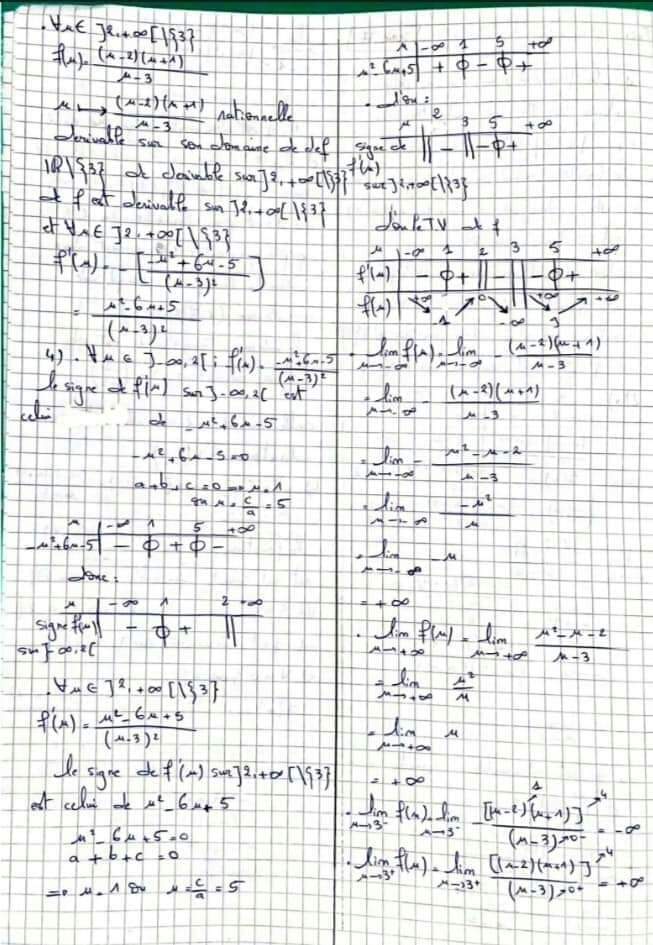 . ∀x ∈ ]2, +∞[ \{3}
f(x) = (x-2)(x+1) / x-3
x ↦ (x-2)(x+1) / x-3 rationnelle
derivable sur son domaine de def
IR\{3} et derivable sur ]2, +∞[ \{3}
et f est derivable sur ]2, +∞[ \{3}
et ∀x ∈ ]2, +∞[ \{3}
f'(x) = - [ -x² + 6x - 5 / (x-3)² ]
= x² - 6x + 5 / (x-3)²
4) . ∀x ∈ ]-∞, 2[ ; f'(x) = -x² + 6x - 5 / (x-3)²
le signe de f'(x) sur ]-∞, 2[ est
celui de -x² + 6x - 5
-x² + 6x - 5 = 0
a + b + c = 0 => x = 1
ou x = c/a = 5
x | -∞ 1 5 +∞
-x² + 6x - 5 | - Φ + Φ -
donc :
x | -∞ 1 2 +∞
signe f'(x) | - Φ + ||
sur ]-∞, 2[
. ∀x ∈ ]2, +∞[ \{3}
f'(x) = x² - 6x + 5 / (x-3)²
le signe de f'(x) sur ]2, +∞[ \{3}
est celui de x² - 6x + 5
x² - 6x + 5 = 0
a + b + c = 0
=> x = 1 ou x = c/a = 5
x | -∞ 1 5 +∞
x² - 6x + 5 | + Φ - Φ +
. d'ou :
x 2 3 5 +∞
signe de f'(x) || - || - Φ +
sur ]2, +∞[ \{3}
d'ou le TV de f
x | -∞ 1 2 3 5 +∞
f'(x) | - Φ + || - || - Φ +
f(x) | +∞ ↘ 1 ↗ 0 ↘ -∞ || +∞ ↘ 9 ↗ +∞
. lim x→-∞ f(x) = lim x→-∞ - (x-2)(x+1) / x-3
= lim x→-∞ - (x-2)(x+1) / x-3
= lim x→-∞ - x² - x - 2 / x-3
= lim x→-∞ -x² / x
= lim x→-∞ -x
= +∞
. lim x→+∞ f(x) = lim x→+∞ x² - x - 2 / x-3
= lim x→+∞ x² / x
= lim x→+∞ x
= +∞
. lim x→3⁻ f(x) = lim x→3⁻ [(x-2)(x+1)] ↗ 4 / (x-3) → 0⁻ = -∞
. lim x→3⁺ f(x) = lim x→3⁺ [(x-2)(x+1)] ↗ 4 / (x-3) → 0⁺ = +∞